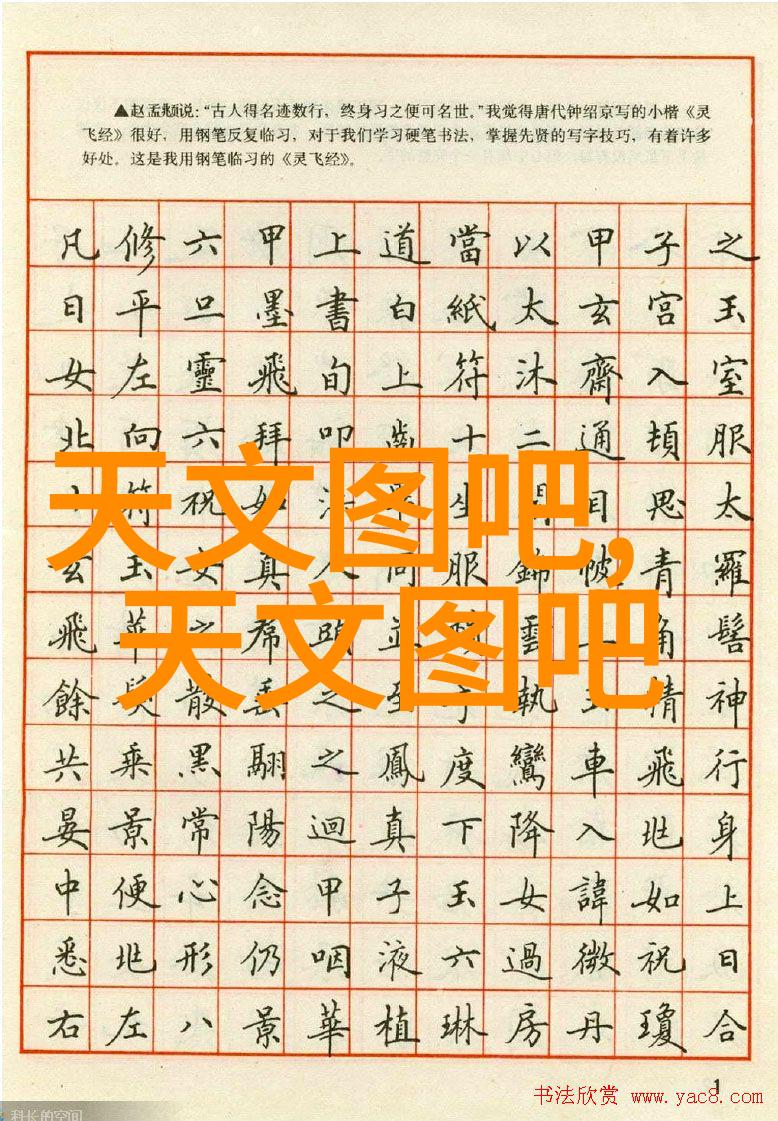 ▲赵孟頫说:“古人得名迹数行，终身习之便可名世。”我觉得唐代钟绍京写的小楷《灵
飞经》很好，用钢笔反复临习，对于我们学习硬笔书法，掌握先贤的写字技巧，有着许多
好处。这是我用钢笔临习的《灵飞经》。
凡修六甲上道當以甲子之
日平旦墨書白紙太玄宮玉
女左靈飛旬上符沐齋入室
北向六拜叩齒十二通頓服
符祝如生目思太
玄玉女真人同服錦帔青羅
飛華之帬頭並雲角髻
餘髮散垂之至執精神
共乘黑翮之鳳度鸞車飛行
晏景常陽迴真下降入北身
中便心念甲子玉女諱如上
悉北形仍咽液六過微祝日
右左八景華植琳房丹瓊合
天文图吧,
天文图吧
1
书法欣赏 www.yac8.com
科长的空间